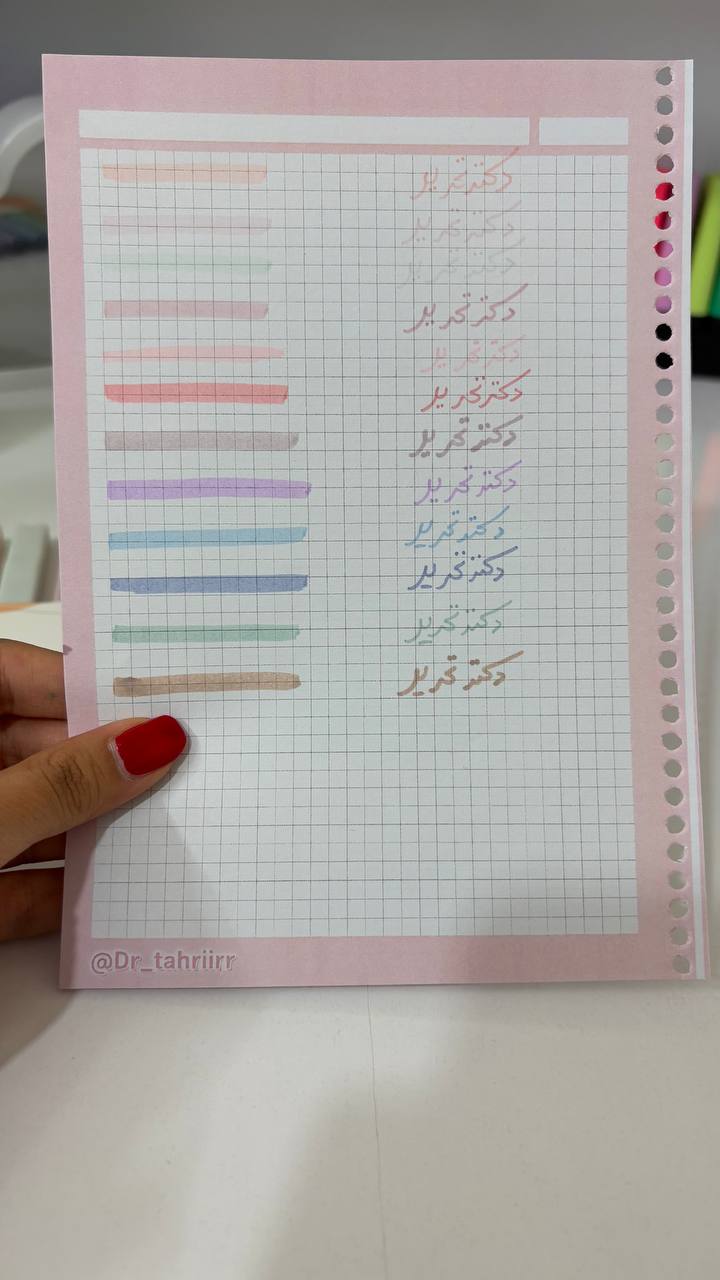 دکتر تحریر
دکتر تحریر
دکتر تحریر
دکتر تحریر
دکتر تحریر
دکتر تحریر
دکتر تحریر
دکتر تحریر
دکتر تحریر
دکتر تحریر
دکتر تحریر
دکتر تحریر
@Dr_tahriirr